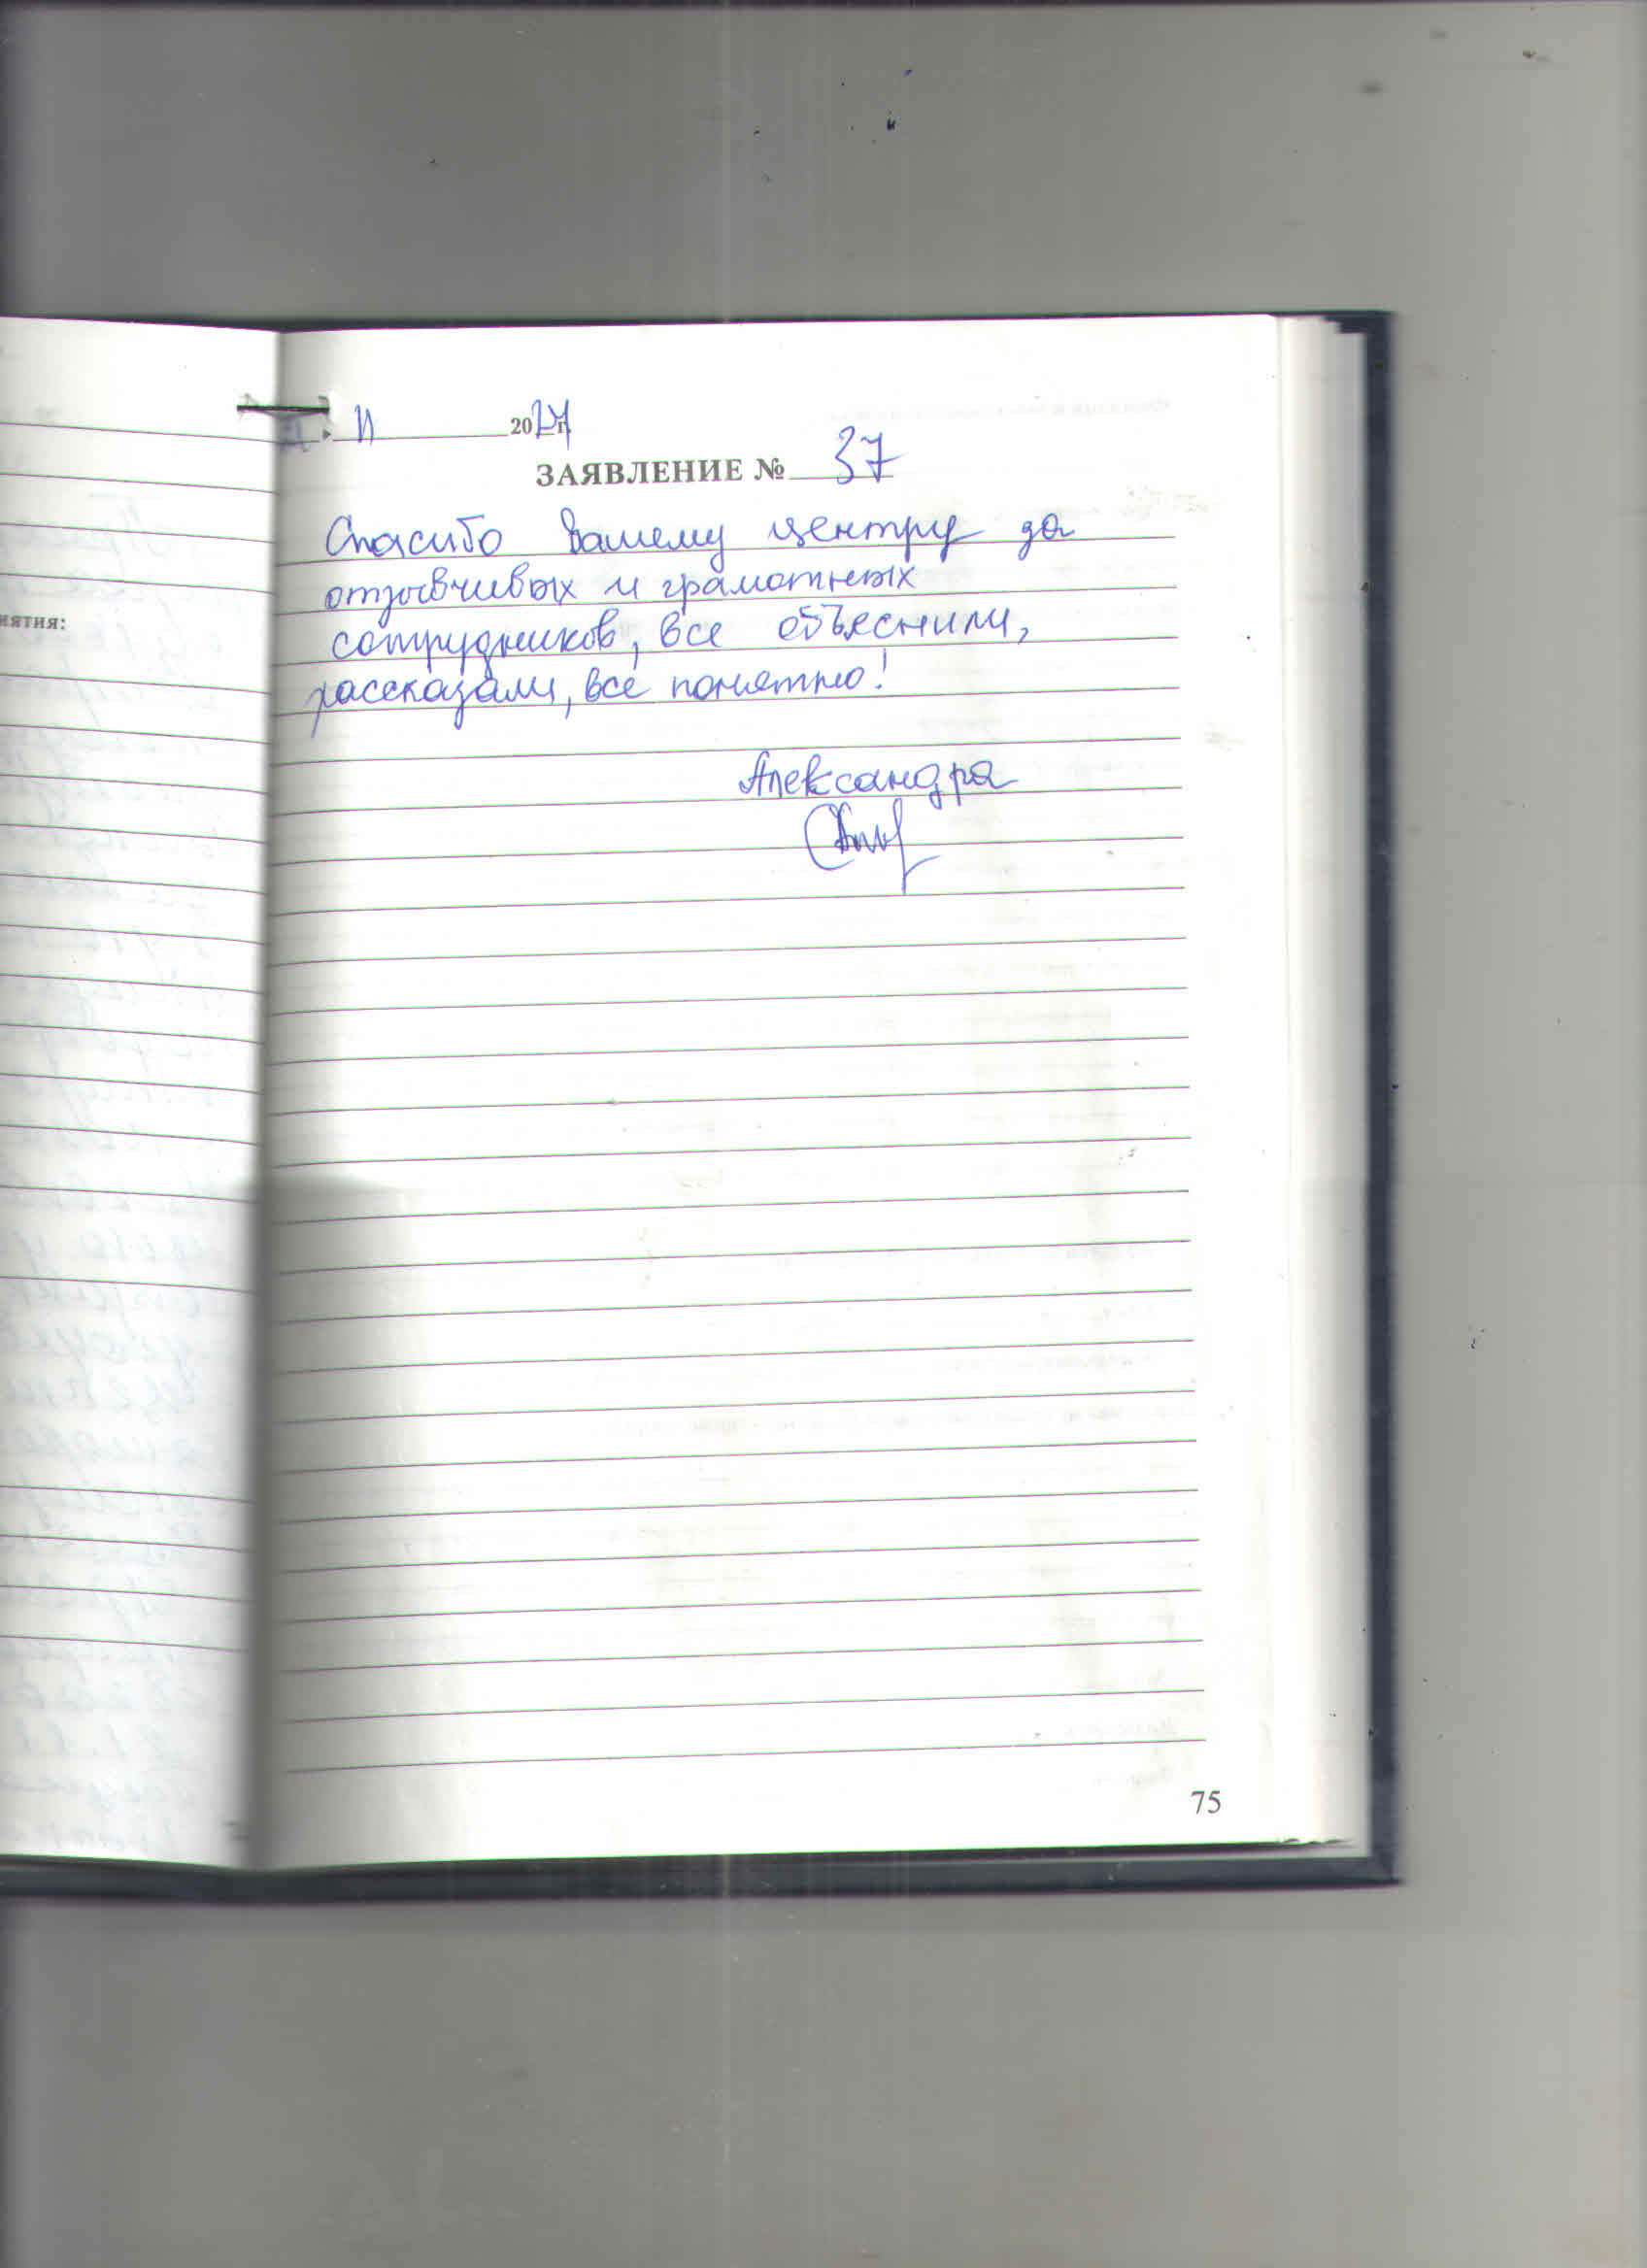 11 2024 г.
ЗАЯВЛЕНИЕ № 37
Спасибо Вашему центру за
отзывчивых и грамотных
сотрудников, все объяснили,
рассказали, все понятно!
Александра
нятия:
75